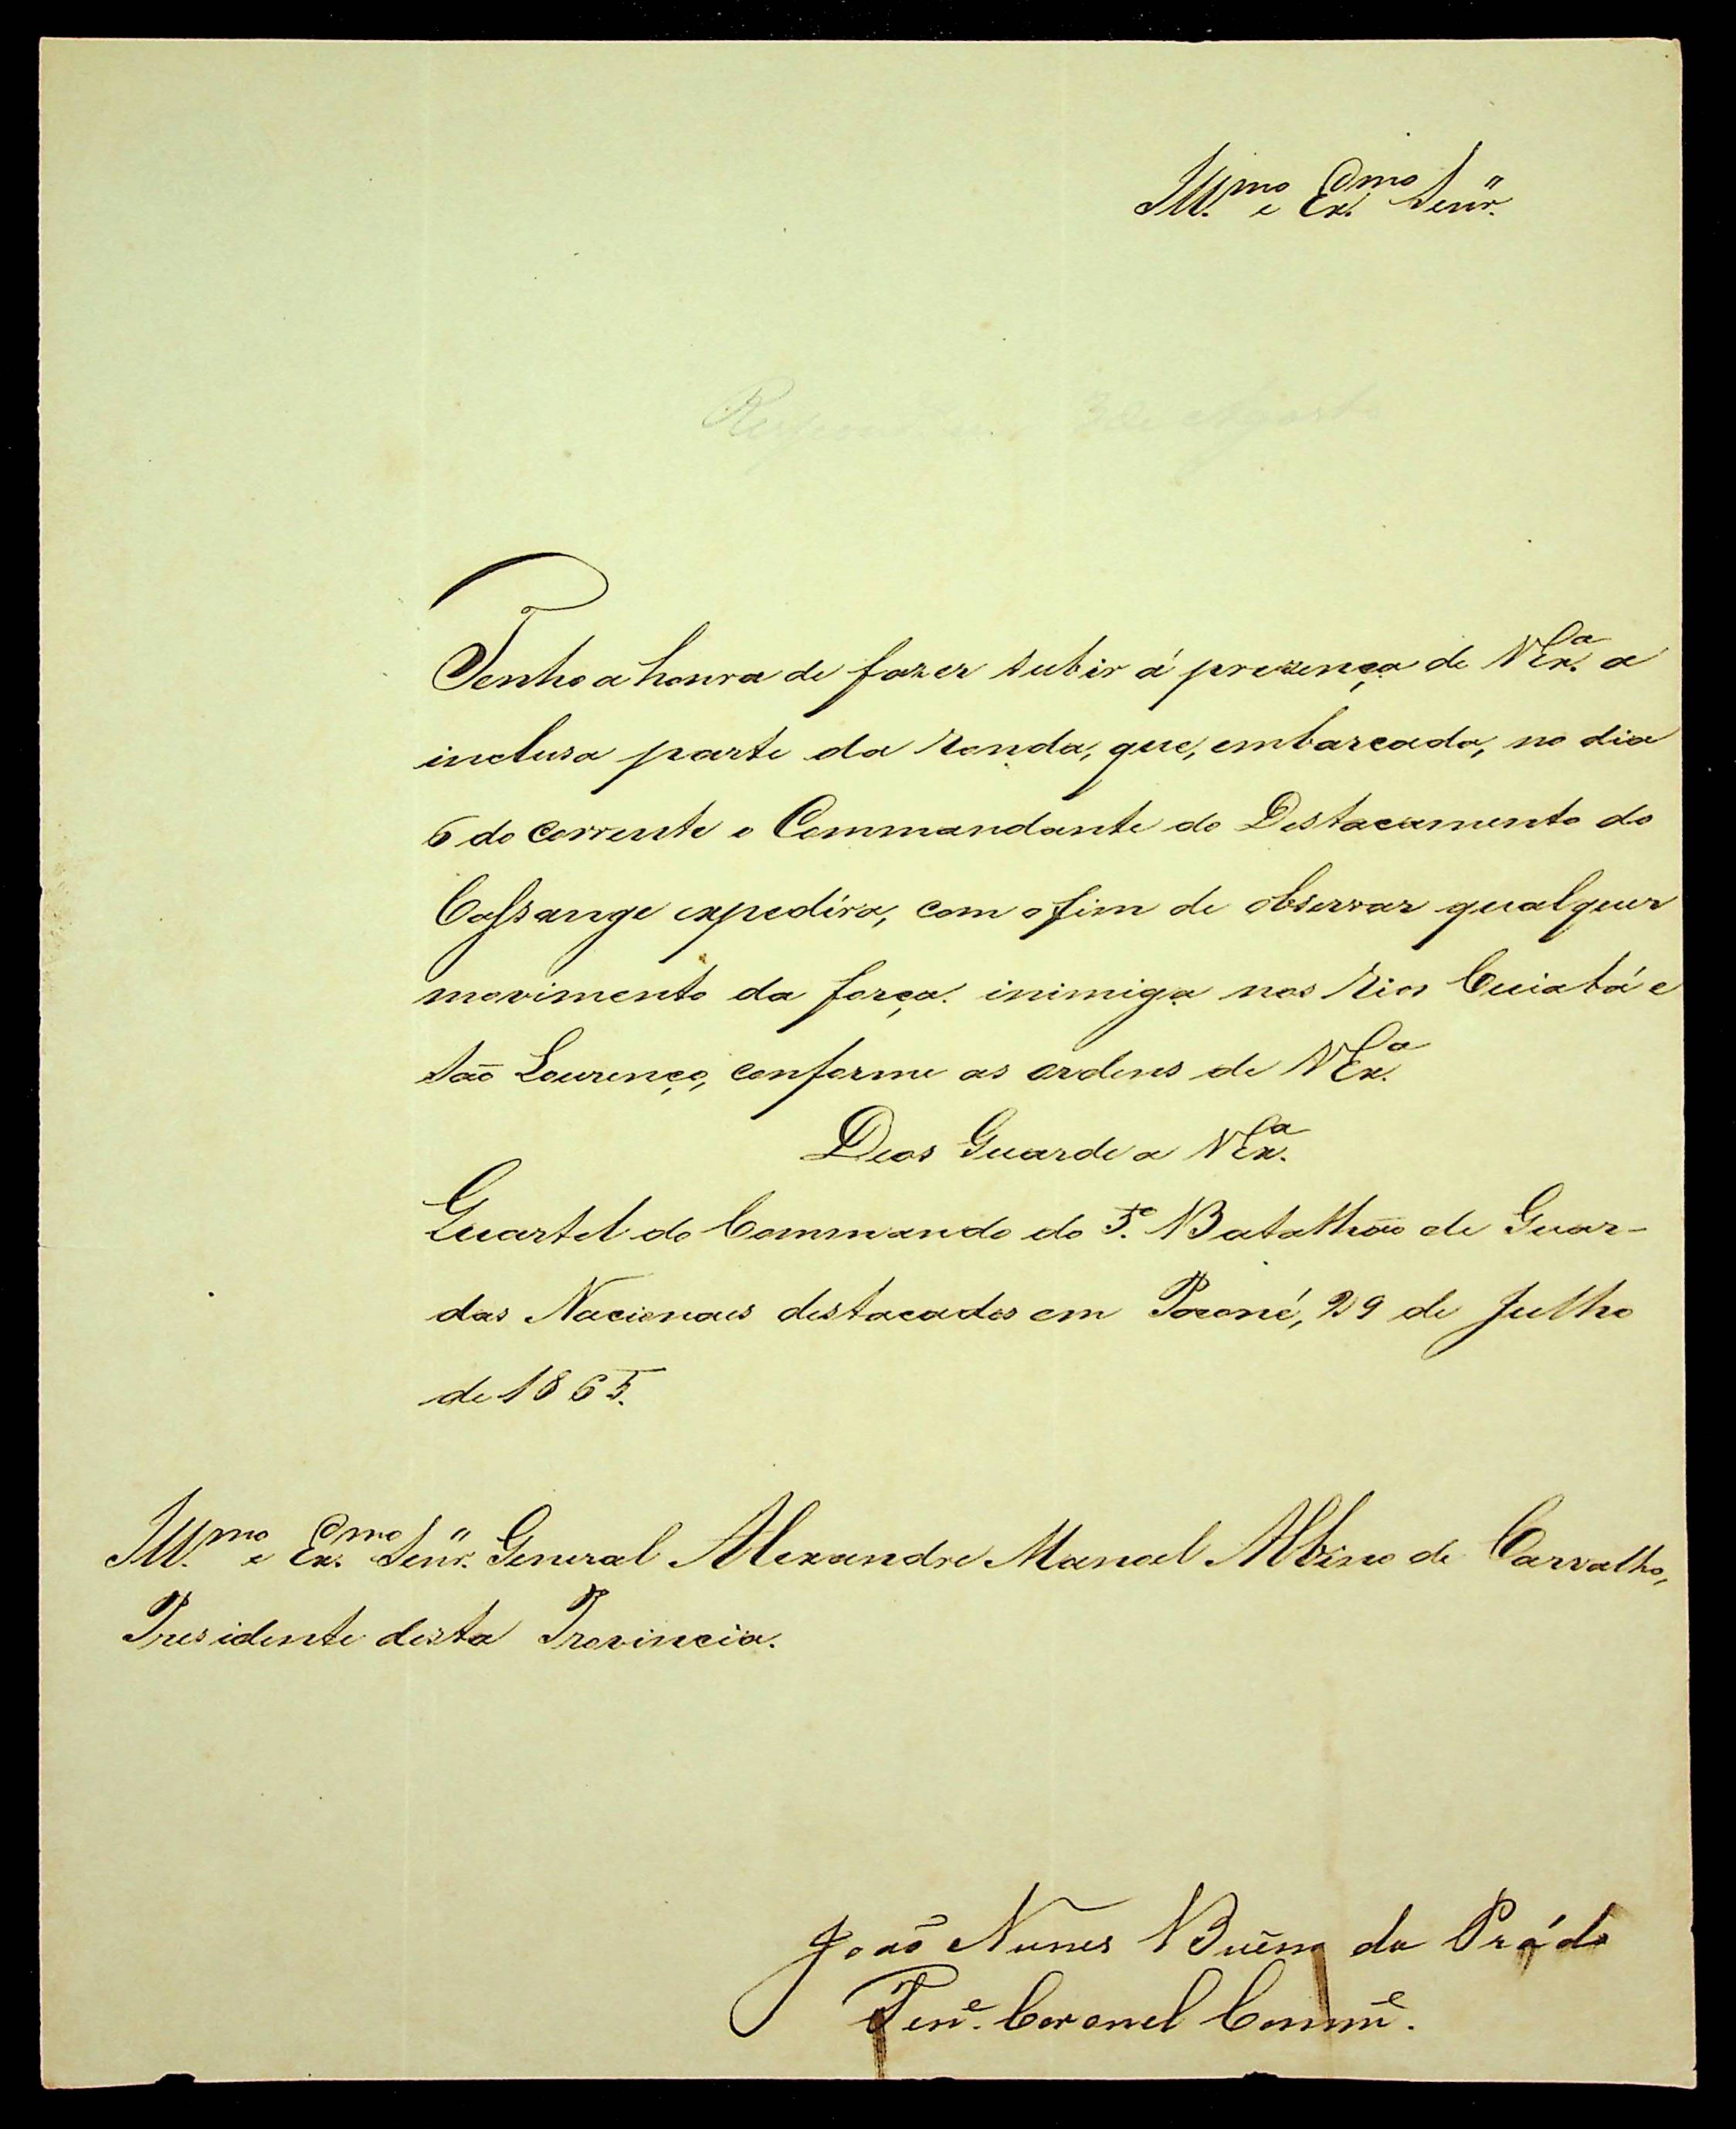 Ill.mo e Ex.mo Senr.
Respond 3 de Agosto
Tenho a honra de fazer subir á prezença de V Ex.a a
inclusa parte da ronda, que, embarcada, no dia
6 do corrente o Commandante do Destacamento do
Cassange expedíra, com o fim de observar qualquer
movimento da força inimiga nos rios Cuiabá e
São Lourenço, conforme as ordens de V Ex.a
Deos Guarde a V Ex.a
Quartel do Commando do 5.o Batalhão de Guar-
das Nacionaes destacados em Poconé, 29 de Julho
de 1865.
Ill.mo e Ex.mo Senr. General Alexandre Manoel Albino de Carvalho,
Presidente desta Provincia.
João Nunes Buêno do Prádo
Ten.e Coronel Comm.e